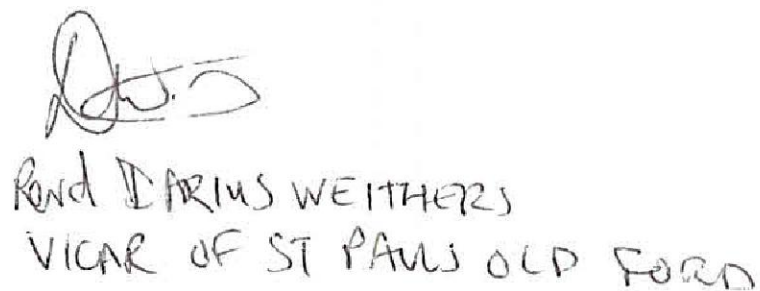 Revd DARIUS WEITHERS
VICAR OF ST PAULS OLD FORD